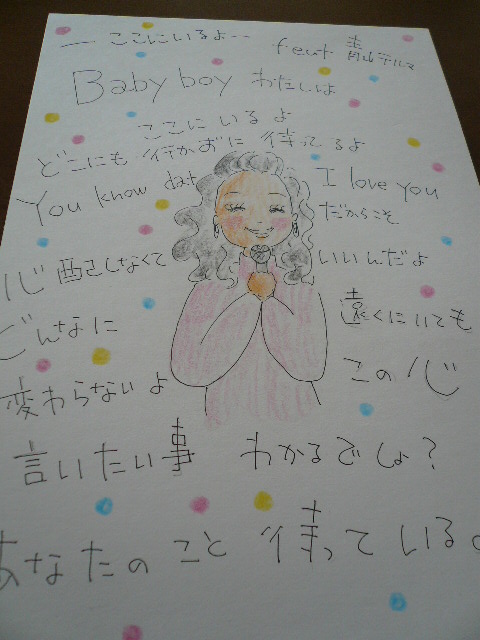 ― ここにいるよ―― feat 青山テルマ
Baby boy わたしは
ここにいるよ
どこにも行かずに 待ってるよ
You know dat I love you
だからこそ
心配しなくて いいんだよ
どんなに 遠くにいても
変わらないよ この心
言いたい事 わかるでしょ?
あなたのこと 待っているよ